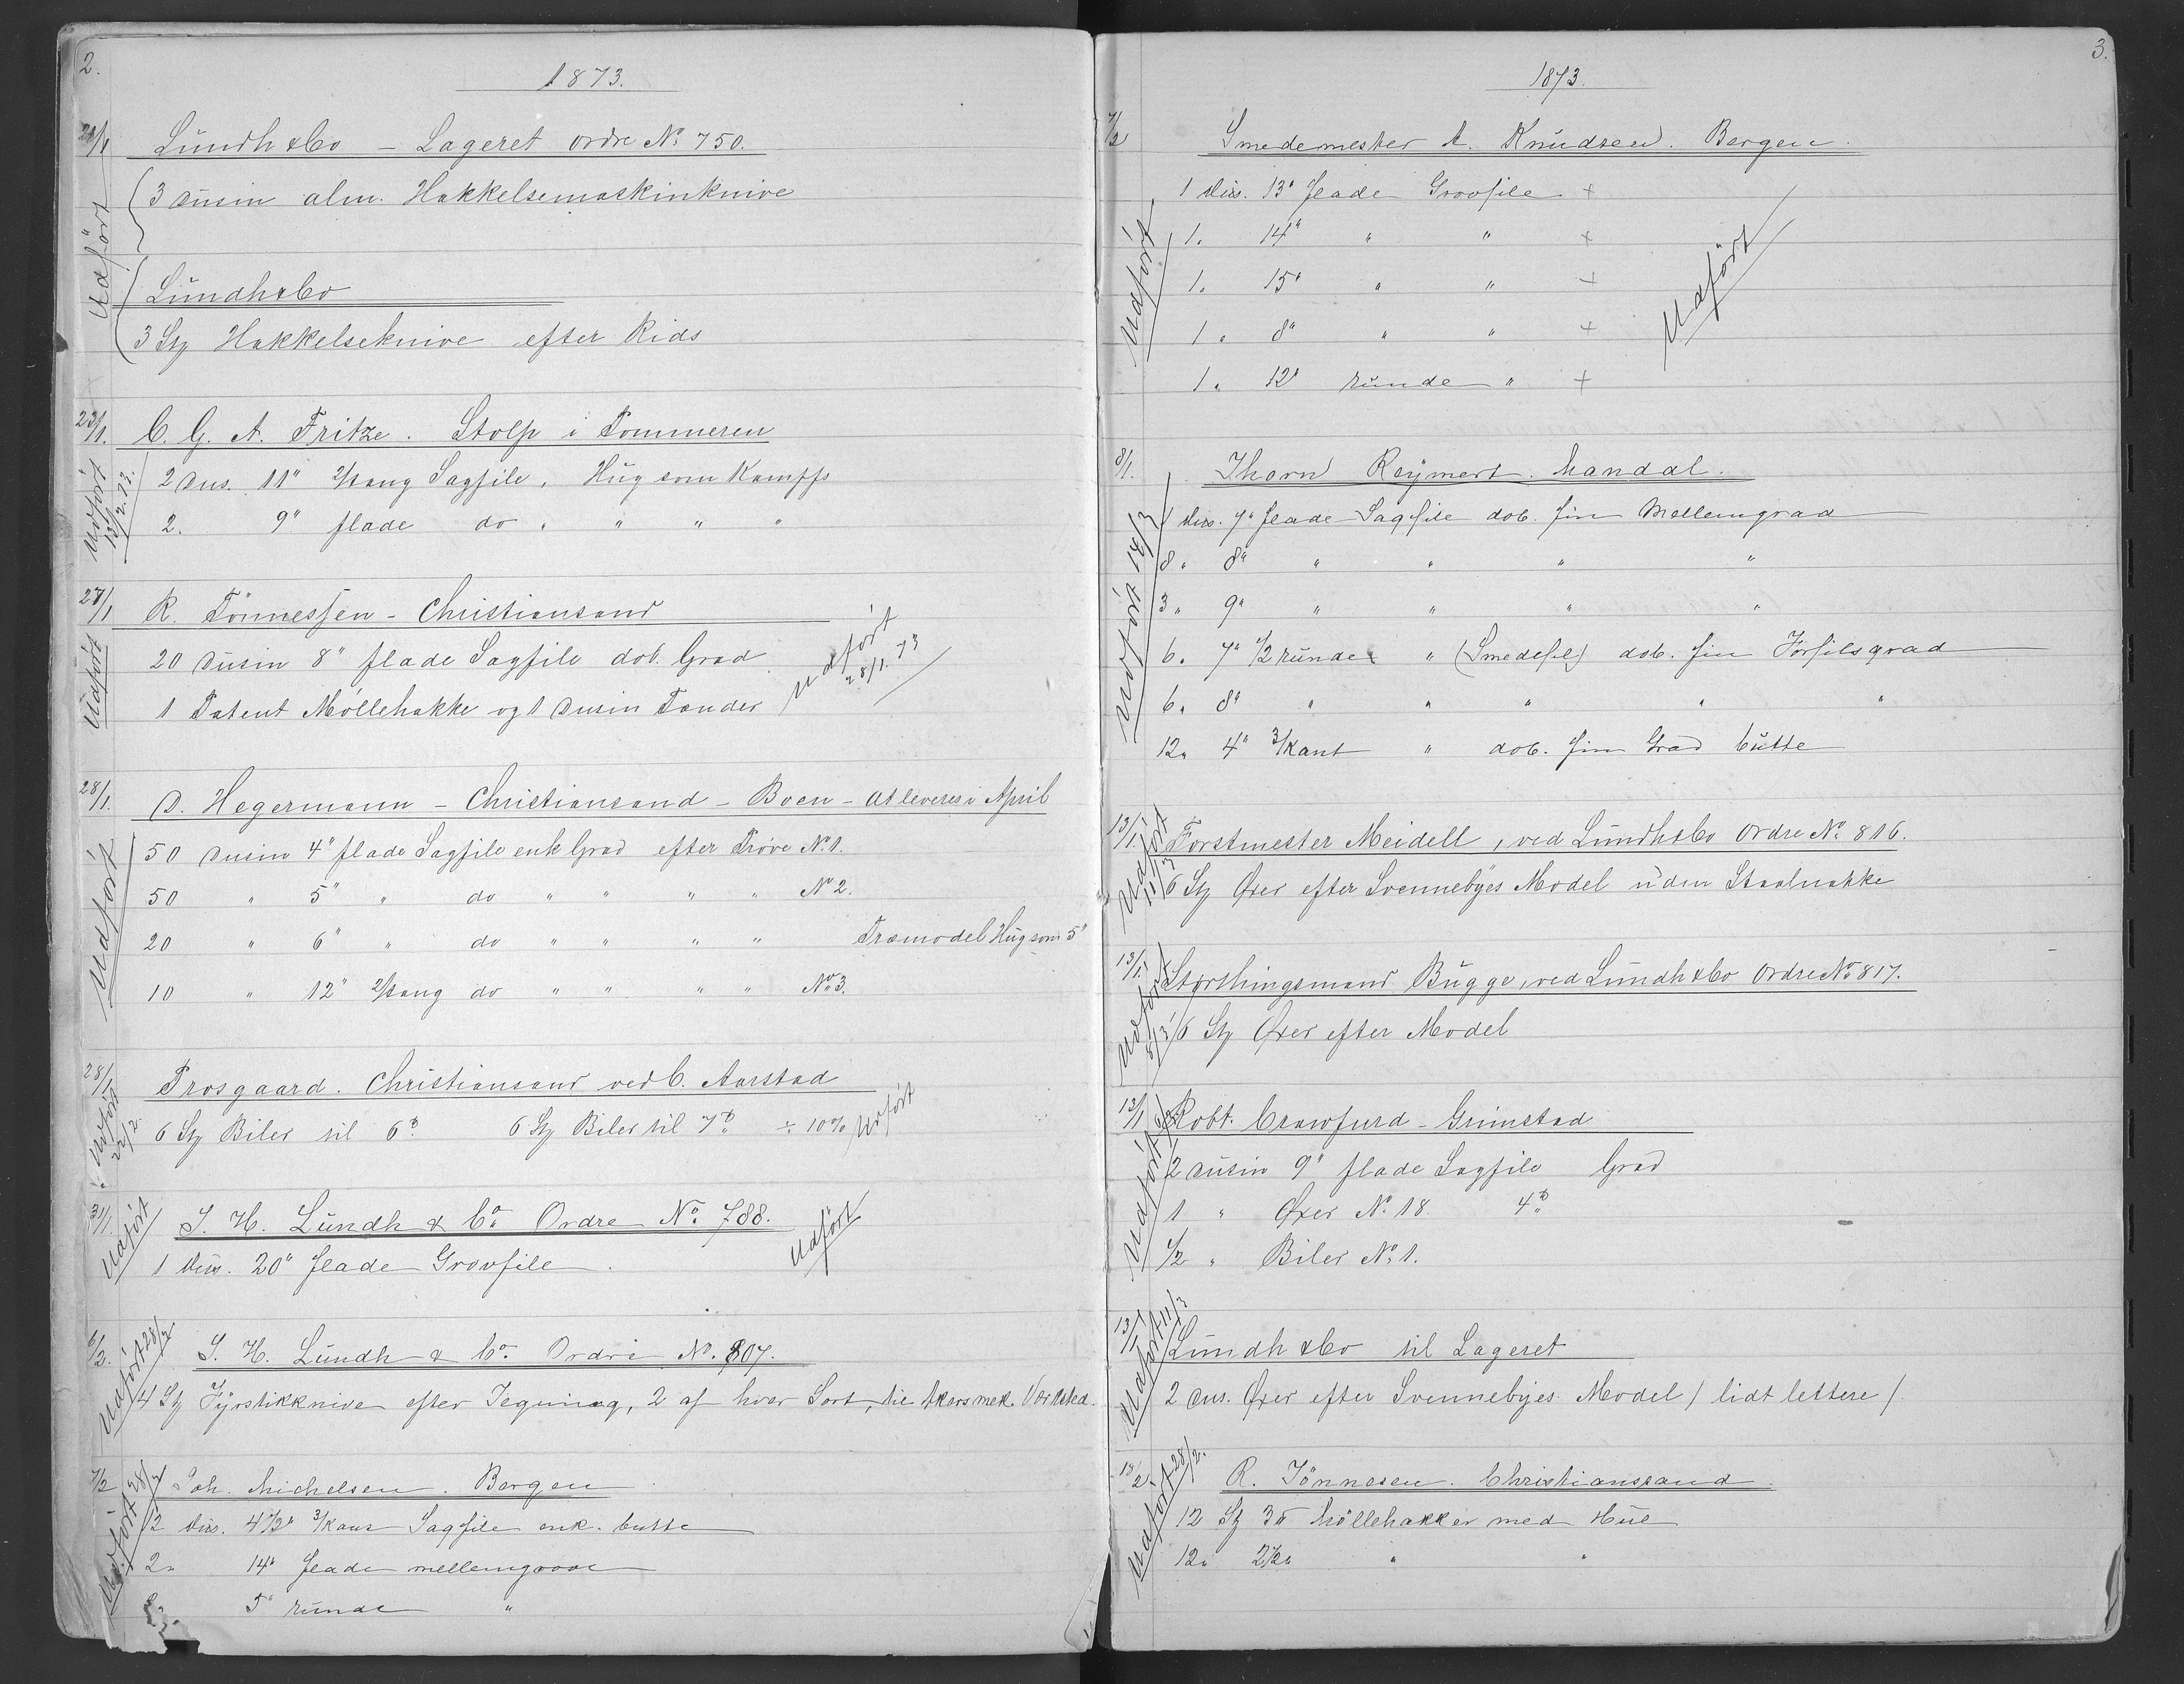 2.
1873.
Lündh & Co – Lageret ordre No 750.
3 Dusin alm. Hakkelsemaskinknive
Udført
Lündh & Co
3 Stz Hakkelseknive efter Rids
23/1. C. G. A. Fritze. Stolp i Pommeren
Udført 13/2.73.
2 Dus. 11" 2/tang Sagfile, Hüg som Kampffs
2. 9" flade do " " " "
27/1 R. Tönnessen – Christiansand
Udført
20 Dusin 8" flade Sagfile dob. Grad
1 Patent Möllehakke og 1 Dusin Tænder
Udført 28/1.73
28/1. D. Hegermann – Christiansand – Boen – at leveres i April
Udført
50 Dusin 4" flade Sagfile enk Grad efter Prøve No 1.
50 " 5" " do " " " " No 2.
20 " 6" " do " " " " Træmodel Hüg som 5"
10 " 12" 2/tang do " " " " No 3.
28/1 Prosgaard. Christiansand ved C. Aarstad
Udført 22/2.
6 Stz Biler til 6. 6 Stz Biler til 7. ÷ 10% Udført
31/1. S. H. Lündh & Co. Ordre No. 788.
Udført
1 Dus. 20" flade Grovfile.
Udført
6/2. S. H. Lündh & Co. Ordre No. 807.
Udført 28/2
4 Stz Fyrstikknive efter Tegning, 2 af hver Sort, til Akers mek. Værksted.
7/2 Joh. Michelsen. Bergen
Udført 28/2
12 Dus. 4 1/2" 3/kant Sagfile enk. butte
2 " 14" flade mellemgrove
5" runde "
3.
1873.
7/2 Smedemester A. Knüdsen. Bergen.
Udført
1 Dus. 13" flade Grovfile +
1 " 14" " " +
1 " 15" " " +
1 " 8" " " +
1 " 12" runde " +
Udført
8/1. Thorn Reymert. Mandal.
Udført 14/3
1 Dus. 7" flade Sagfile dob. fin Mellemgrad
8 " 8" " " " "
3 " 9" " " " "
6 " 7" 1/2 runde " (Smedefil) dob. fin Forfilsgrad
6 " 8" " " " " "
12 " 4" 3/kant " dob. fin Grad butte
13/1. Forstmester Meidell, ved Lündh & Co Ordre No 816.
Udført
6 Stz Øxer efter Svennebyes Model uden Staalnakke
13/1. Storthingsmand Bügge, ved Lündh & Co Ordre No 817.
Udført
6 Stz Øxer efter Model
13/1 Robt. Crawfurd – Grimstad
Udført
2 Dusin 9" flade Sagfile Grad
1 " Øxer No 18. 4
1/2 " Biler No 1.
13/1 Lündh & Co til Lageret
Udført 11/3
2 Dus. Øxer efter Svennebyes Model / lidt lettere /.
13/2 R. Tönnesen. Christianssand.
Udført 28/2.
12 Stz 3 Möllehakker med Hul
12 " 2 1/2 " "